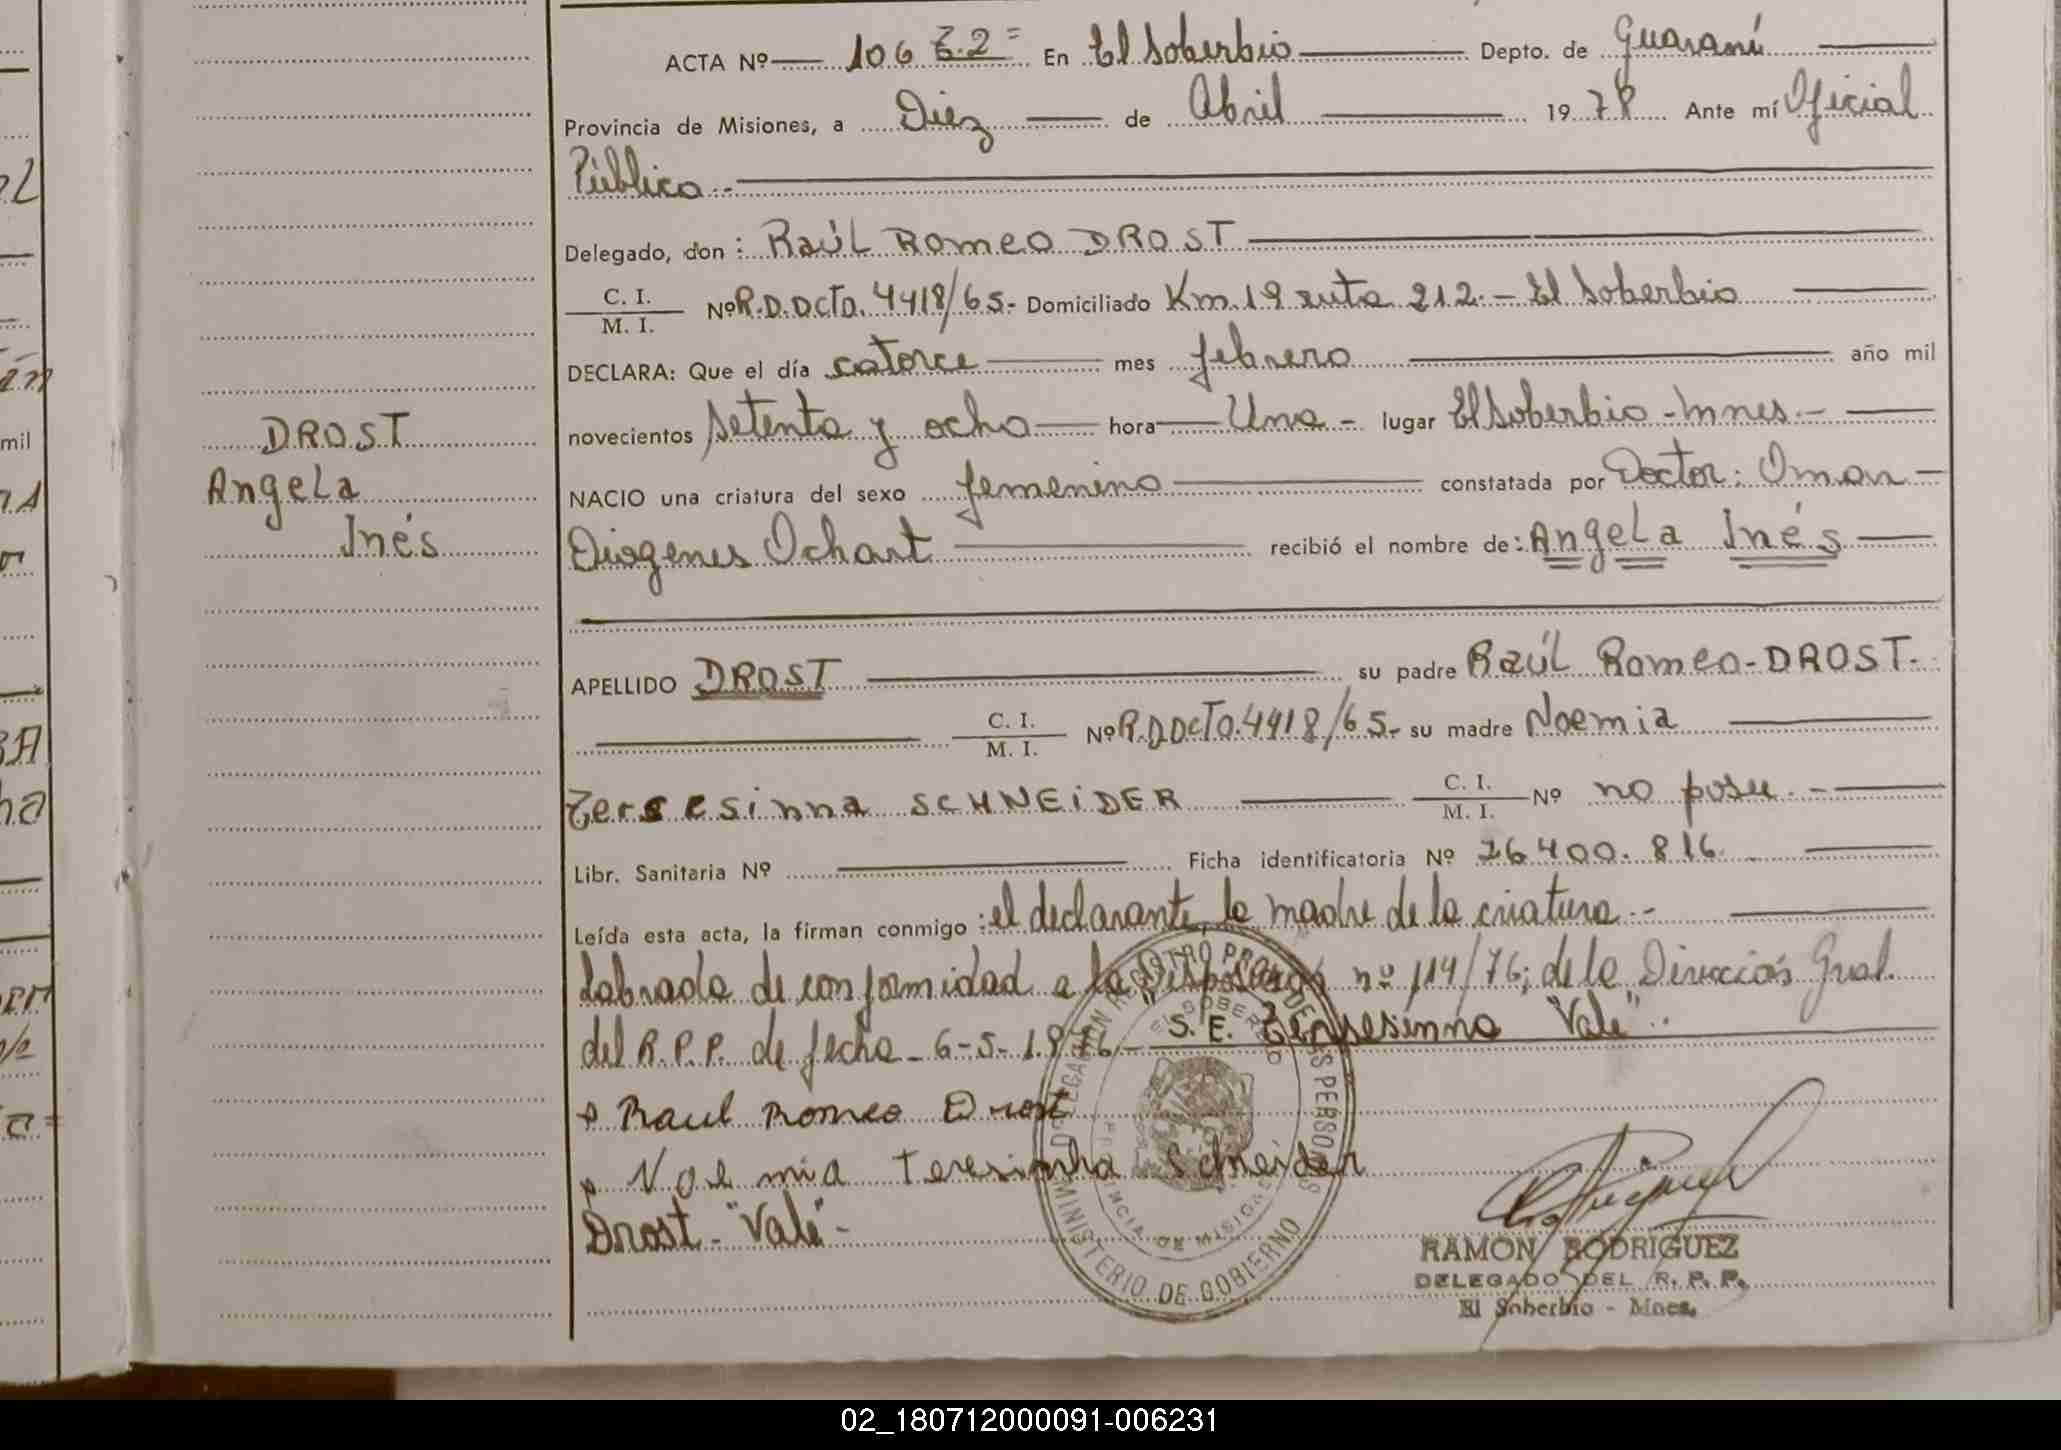 ACTA Nº 106 T.2= En El Soberbio Depto. de Guaraní
Provincia de Misiones, a Diez de Abril 1978 Ante mí Oficial
Público.-
Delegado, don: Raúl Romeo DROST
C. I. / M. I. Nº R.D.Octo. 4418/65.- Domiciliado Km. 19 ruta 212.- El Soberbio
DECLARA: Que el día catorce mes febrero año mil
novecientos setenta y ocho hora Una - lugar El Soberbio - Mnes.-
NACIO una criatura del sexo femenino constatada por Doctor: Omar
Diogenes Ochart recibió el nombre de: Angela Inés
DROST
Angela
Inés
APELLIDO DROST su padre Raúl Romeo - DROST.-
C. I. / M. I. Nº R.D.Octo. 4418/65.- su madre Noemia
Teresinna SCHNEIDER C. I. / M. I. Nº no posee.-
Libr. Sanitaria Nº Ficha identificatoria Nº 26400.816
Leída esta acta, la firman conmigo: el declarante, la madre de la criatura.-
Labrada de conformidad a la Disposición nº 114/76; de la Dirección Gral.
del R.P.P. de fecha - 6-5-1.976.- "S.E. Teresinna Vale"..
Raul Romeo Drost
Noemia Teresinha Schneider
Drost - "Vale" -
MINISTERIO DE GOBIERNO
EL SOBERBIO
PROVINCIA DE MISIONES
RAMON RODRIGUEZ
DELEGADO DEL R. P. P.
El Soberbio - Mnes.
02_180712000091-006231